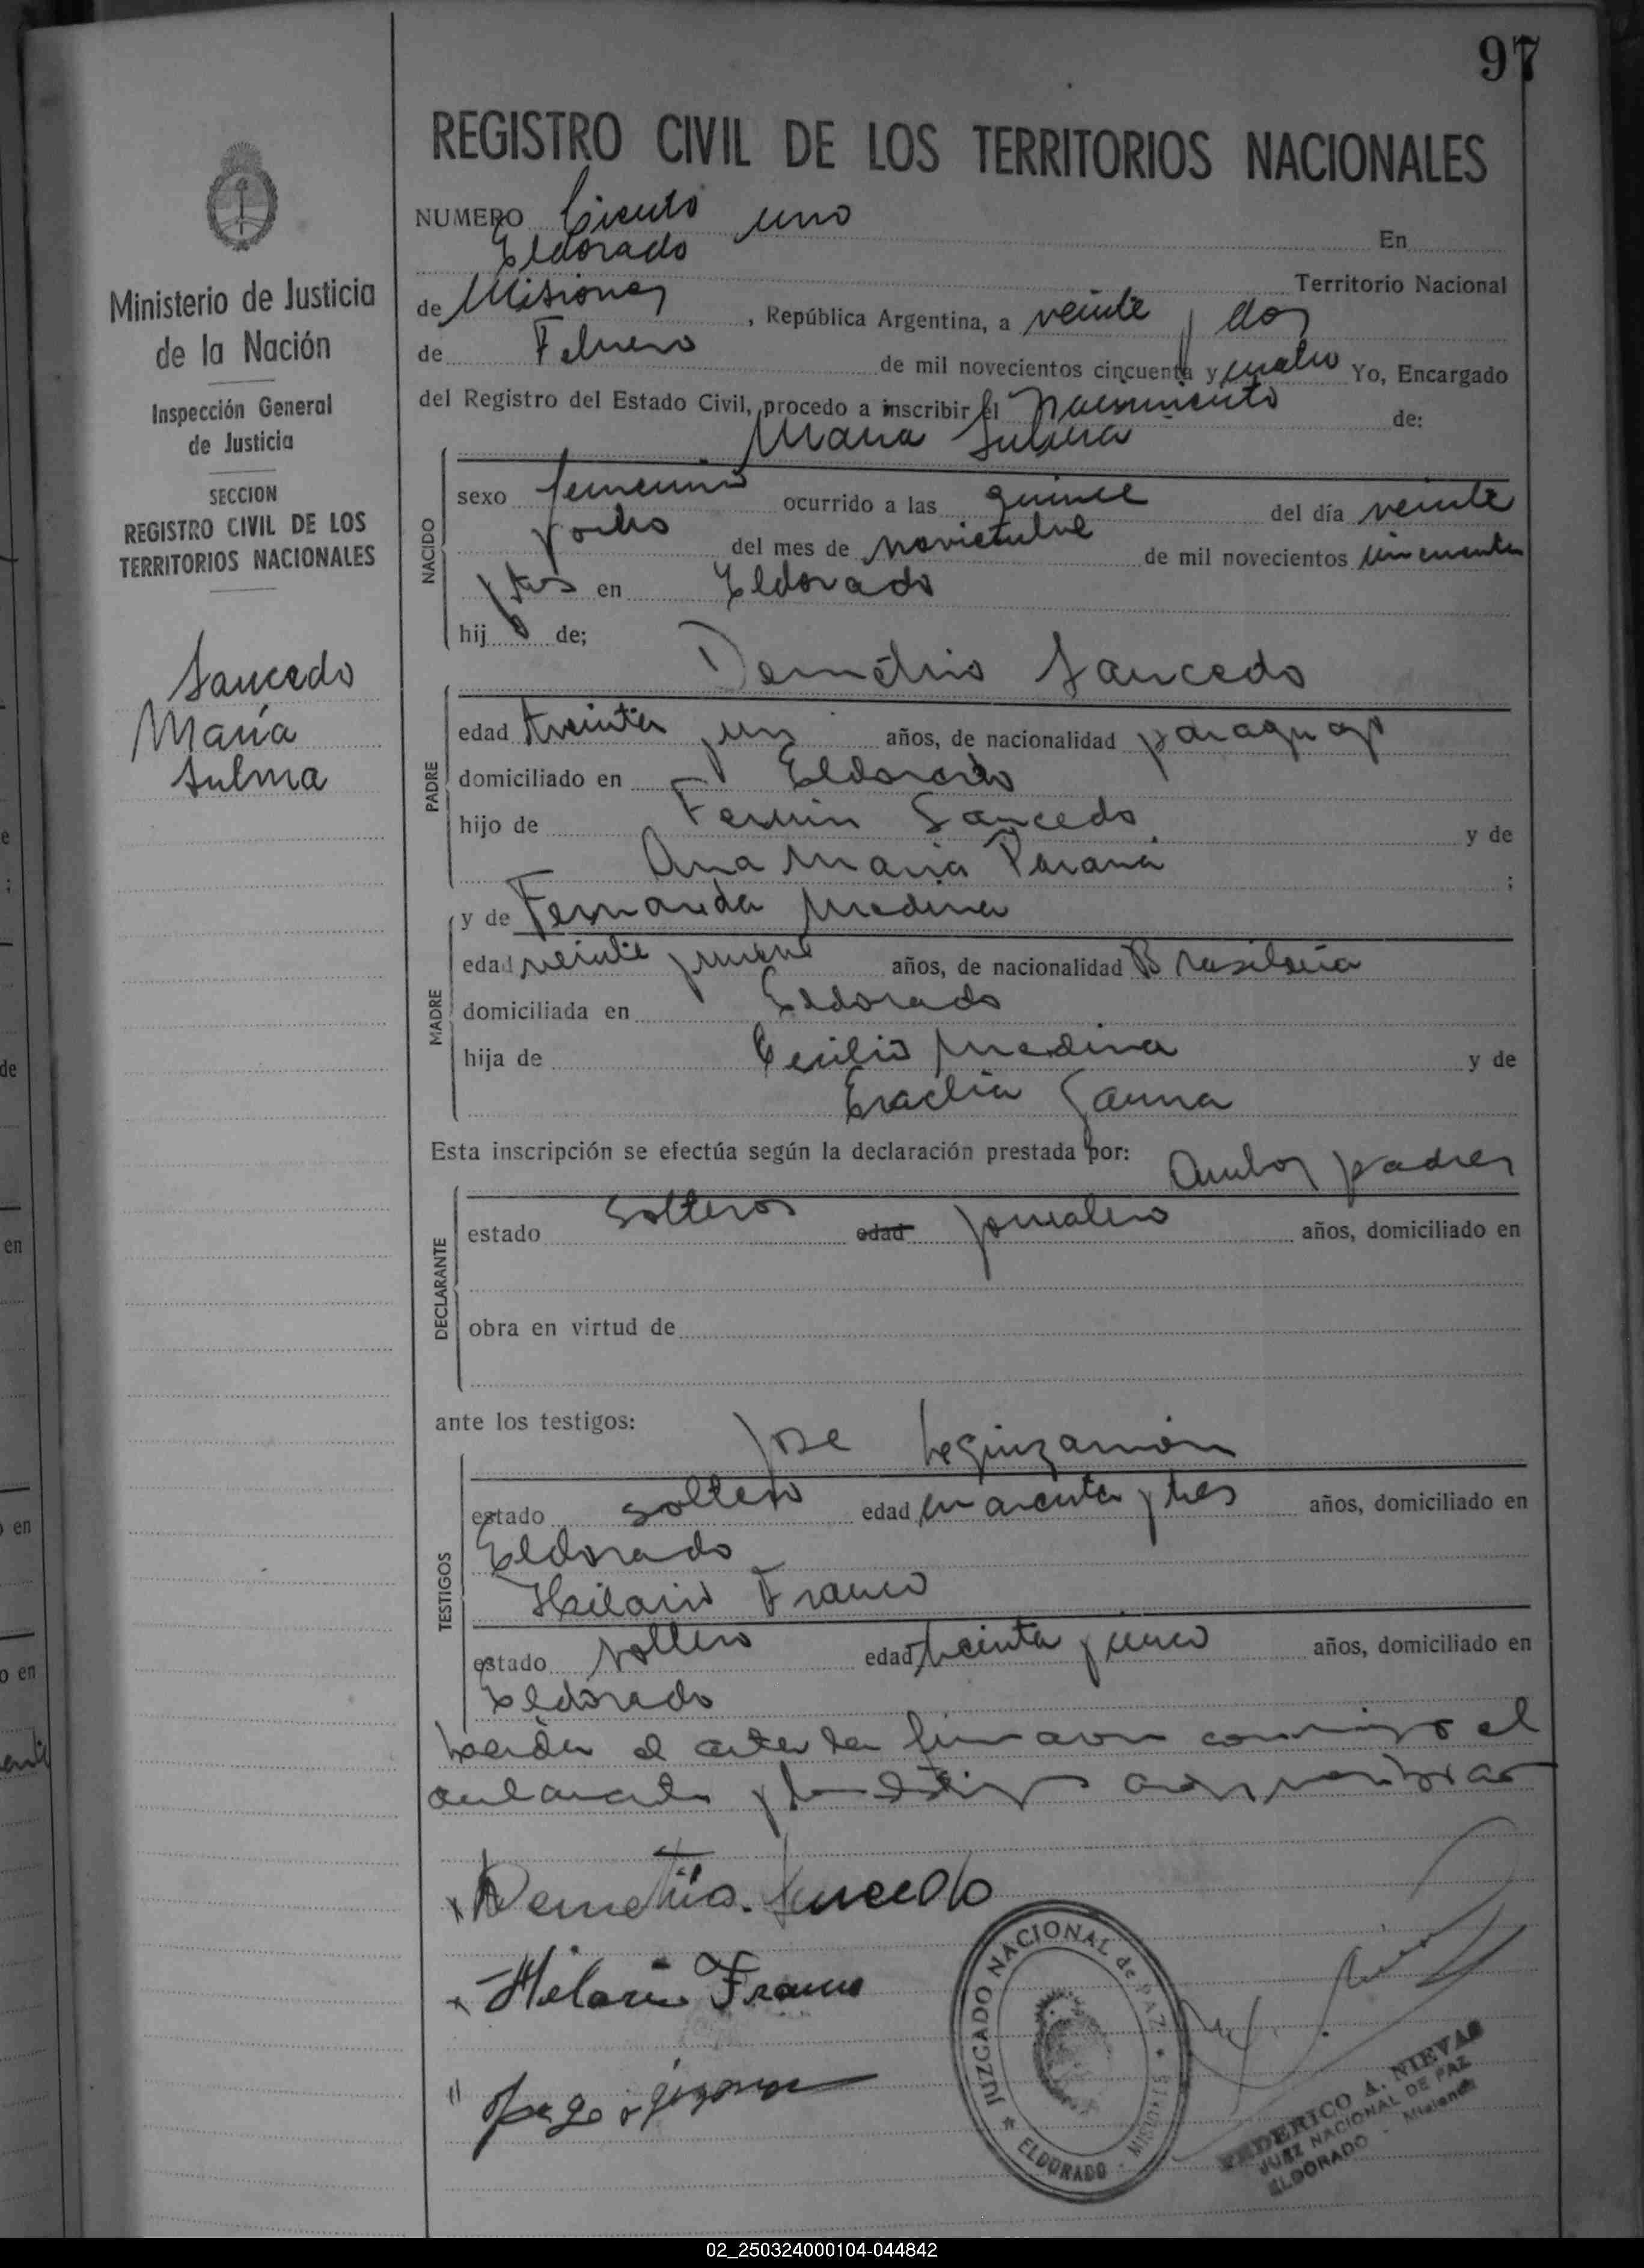 97
REGISTRO CIVIL DE LOS TERRITORIOS NACIONALES
NUMERO Ciento uno En
Eldorado Territorio Nacional
de Misiones, República Argentina, a veinte y dos
de Febrero de mil novecientos cincuenta y cuatro Yo, Encargado
del Registro del Estado Civil, procedo a inscribir el nacimiento de:
Maria Sulma
NACIDO
sexo femenino ocurrido a las quince del día veinte
y ocho del mes de noviembre de mil novecientos cincuenta
y tres en Eldorado
hija de;
Demetrio Saucedo
PADRE
edad treinta y un años, de nacionalidad paraguayo
domiciliado en Eldorado
hijo de Fermin Saucedo y de
Ana Maria Parana ;
y de Fernanda Medina
MADRE
edad veinte y nueve años, de nacionalidad Brasileña
domiciliada en Eldorado
hija de Cecilio Medina y de
Eraclia Gauna
Esta inscripción se efectúa según la declaración prestada por: Ambos padres
DECLARANTE
estado solteros edad jornalero años, domiciliado en
obra en virtud de
ante los testigos:
Jose Leguizamón
TESTIGOS
estado soltero edad cuarenta y tres años, domiciliado en
Eldorado
Hilario Franco
estado soltero edad treinta y cinco años, domiciliado en
Eldorado
Leida el acta la firmaron conmigo el
declarante y los testigos
Demetrio Saucedo
Hilario Franco
JUZGADO NACIONAL de PAZ
ELDORADO - MISIONES
FEDERICO A. NIEVAS
JUEZ NACIONAL DE PAZ
ELDORADO - Misiones
Ministerio de Justicia
de la Nación
Inspección General
de Justicia
SECCION
REGISTRO CIVIL DE LOS
TERRITORIOS NACIONALES
Saucedo
María
Sulma
02_250324000104-044842